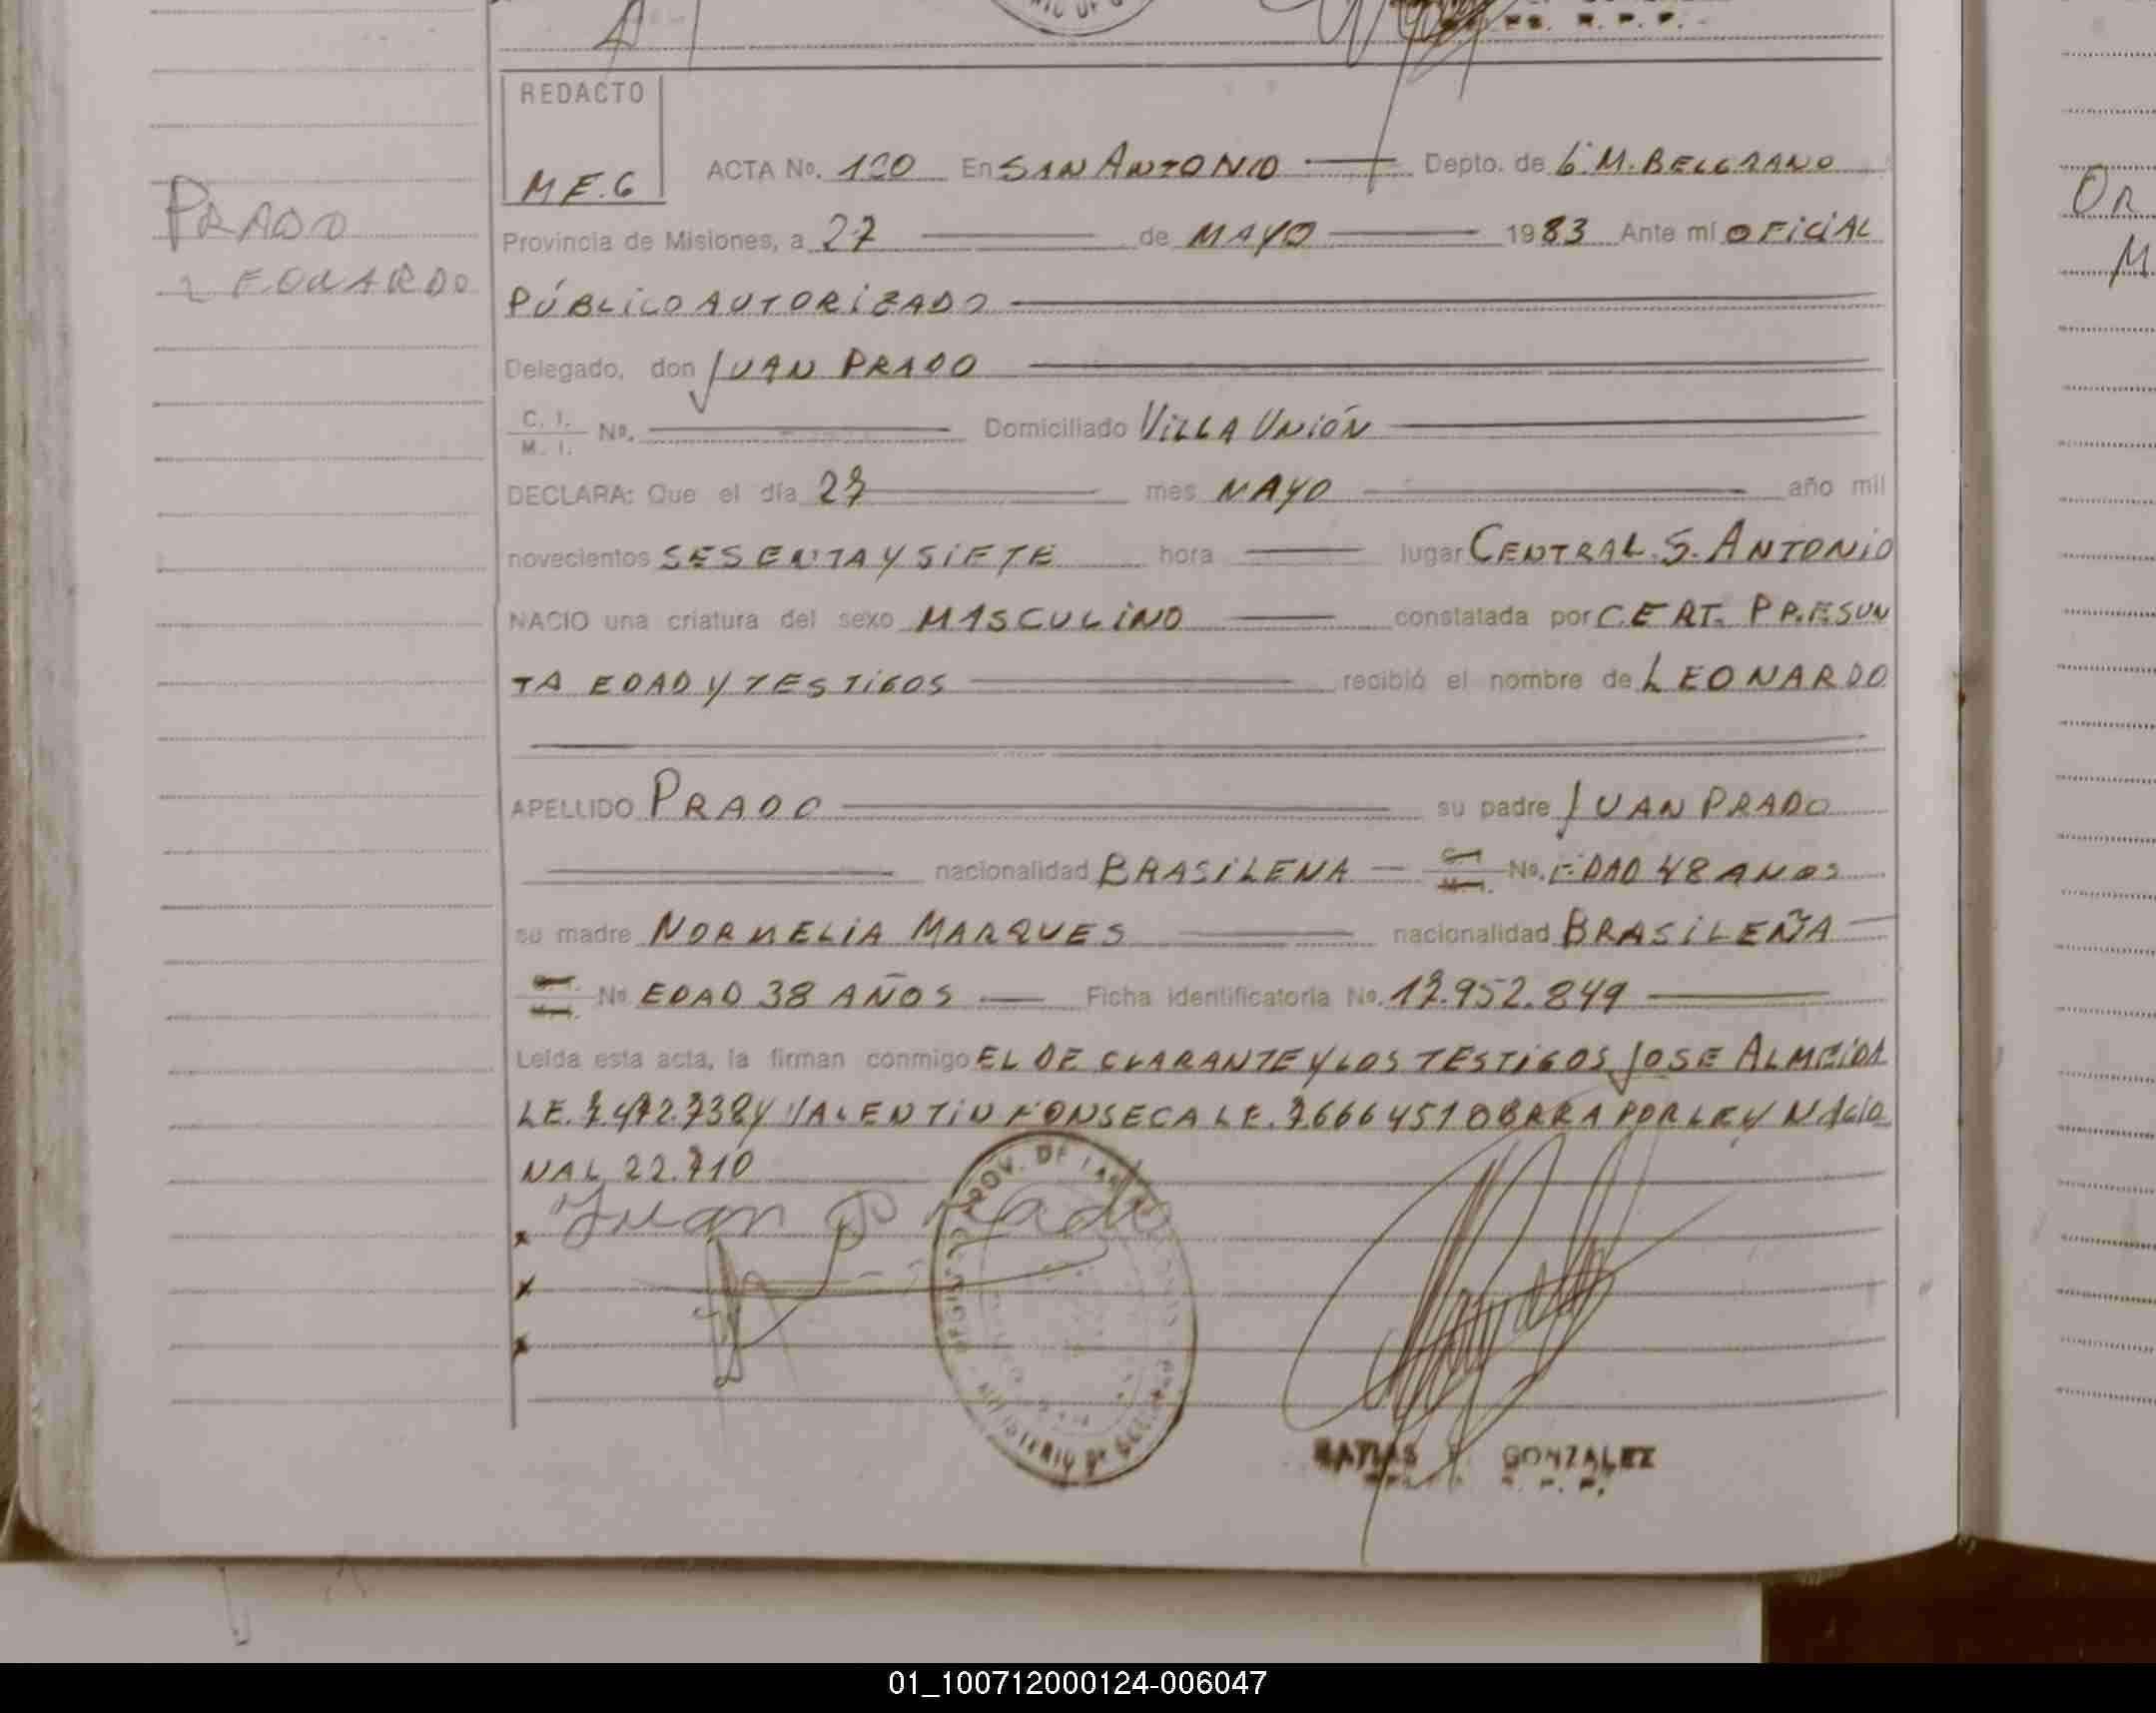 REDACTO
ME.G
ACTA No. 120 En SAN ANTONIO Depto. de G. M. BELGRANO
PRADO
LEONARDO
Provincia de Misiones, a 27 de MAYO 1983 Ante mí OFICIAL
PÚBLICO AUTORIZADO
Delegado, don JUAN PRADO
C. I.
M. I. No. Domiciliado VILLA UNIÓN
DECLARA: Que el día 27 mes MAYO año mil
novecientos SESENTA Y SIETE hora lugar CENTRAL S. ANTONIO
NACIO una criatura del sexo MASCULINO constatada por CERT. PRESUN
TA EDAD Y TESTIGOS recibió el nombre de LEONARDO
APELLIDO PRADO su padre JUAN PRADO
nacionalidad BRASILENA No. EDAD 48 ANOS
su madre NORMELIA MARQUES nacionalidad BRASILEÑA
No EDAD 38 AÑOS Ficha identificatoria No. 17.952.849
Leída esta acta, la firman conmigo EL DECLARANTE Y LOS TESTIGOS JOSE ALMEIDA
LE. 7.472.738 Y VALENTIN FONSECA LE. 7666451 OBRA POR LEY NACIO
NAL 22.710
Juan Prado
PROV. DE
MINISTERIO DE
MATIAS GONZALEZ
OR
M
01_100712000124-006047